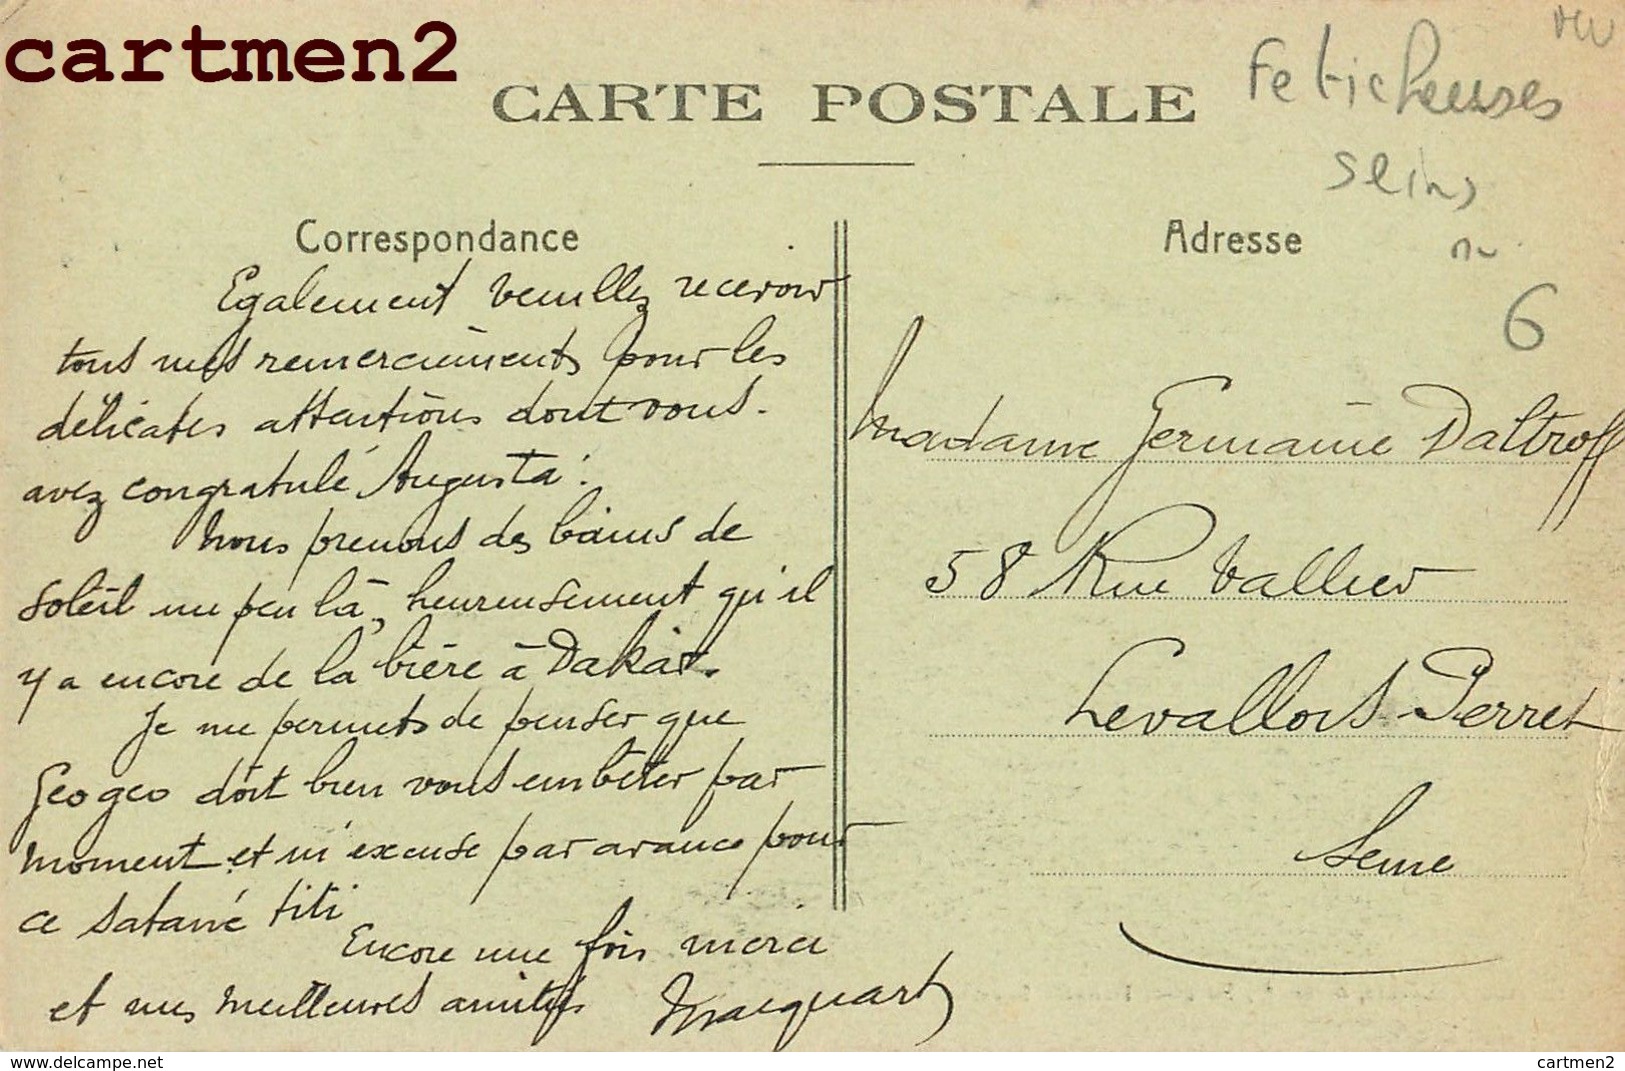 cartmen2
CARTE POSTALE
feticheuses
seins
nu
6
Correspondance
Egalement veuillez recevoir
tous mes remerciements pour les
délicates attentions dont vous
avez congratulé Augusta.
Nous prenons des bains de
soleil un peu là, heureusement qu'il
y a encore de la bière à Dakar.
Je me permets de penser que
Geogeo doit bien vous embêter par
moment et m'excuse par avance pour
ce satané titi
Encore une fois merci
et mes meilleures amitiés Macquart
Adresse
Madame Germaine Daltroff
58 Rue Vallier
Levallois-Perret
Seine
delcampe.net
cartmen2